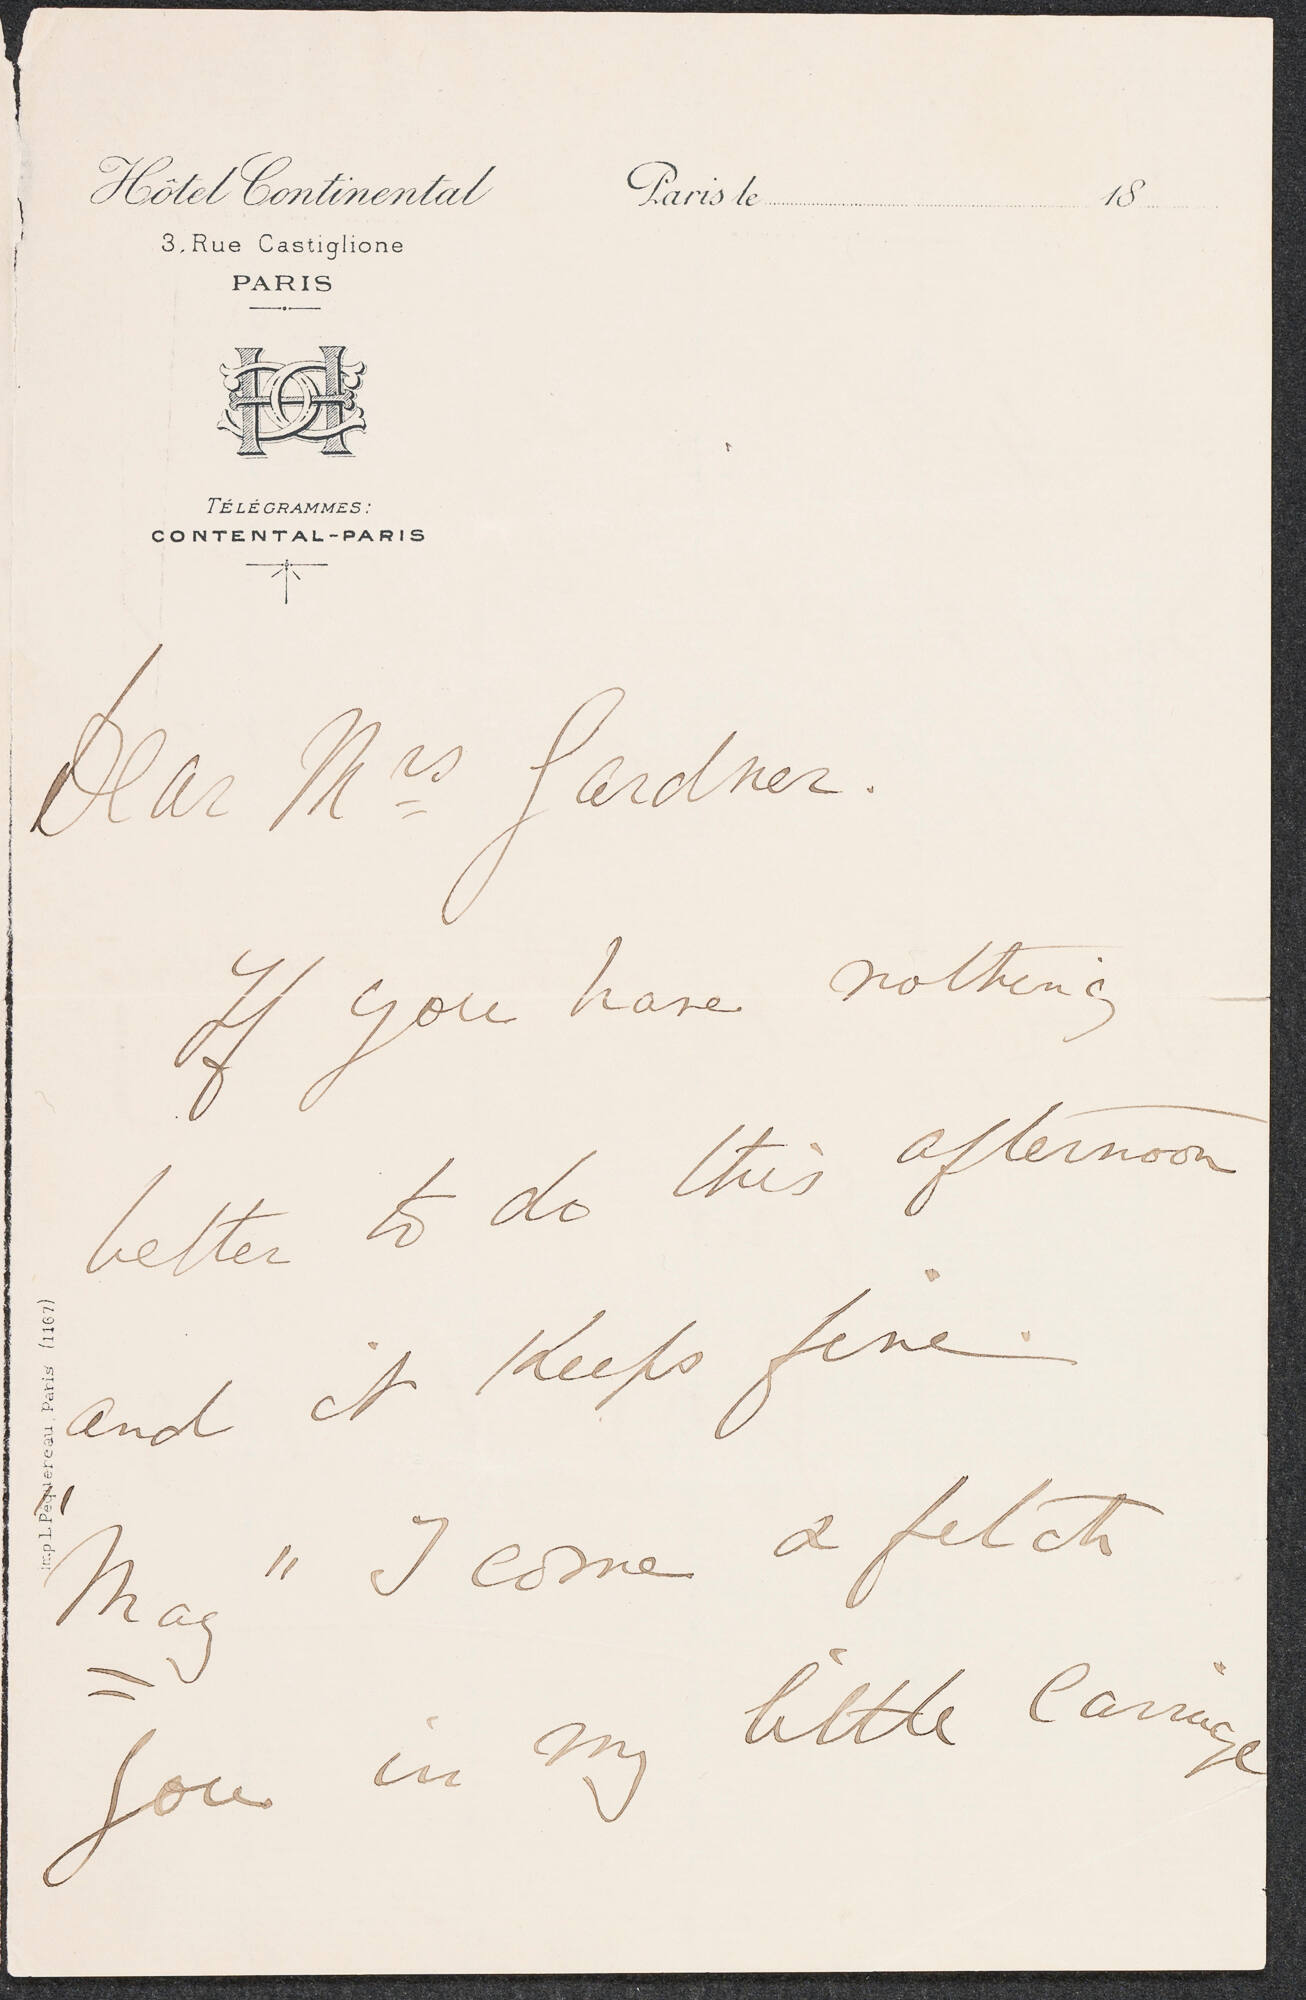 Hôtel Continental
3, Rue Castiglione
PARIS
Paris le 18
TÉLÉGRAMMES:
CONTENTAL-PARIS
Dear Mrs Gardner.
If you have nothing
better to do this afternoon
and it keeps fine.
"May" I come & fetch
you in my little carriage
Imp. L. Pequereau, Paris (1167)